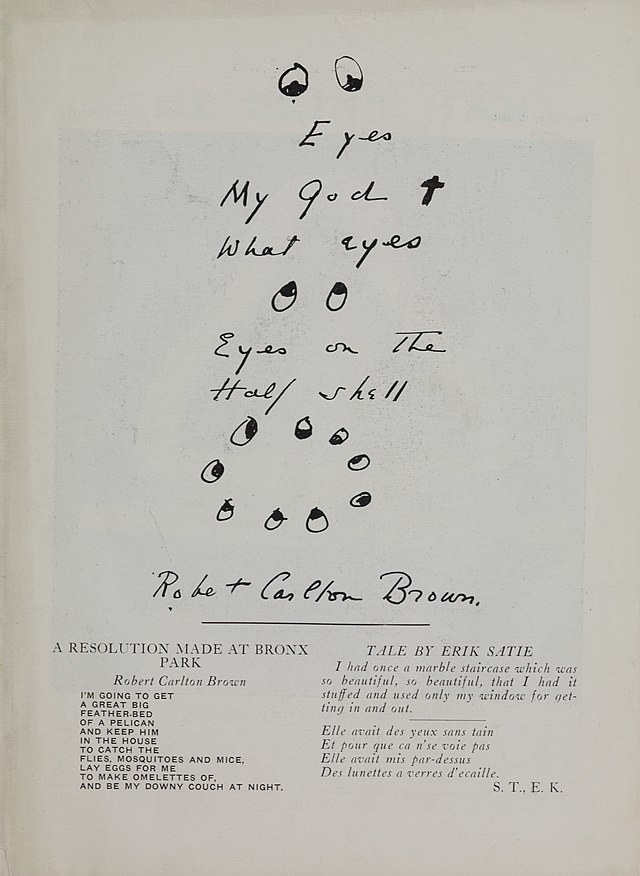 Eyes
My God
What eyes
Eyes on the
Half shell
Robert Carlton Brown.
A RESOLUTION MADE AT BRONX
PARK
Robert Carlton Brown
I'M GOING TO GET
A GREAT BIG
FEATHER-BED
OF A PELICAN
AND KEEP HIM
IN THE HOUSE
TO CATCH THE
FLIES, MOSQUITOES AND MICE,
LAY EGGS FOR ME
TO MAKE OMELETTES OF,
AND BE MY DOWNY COUCH AT NIGHT.
TALE BY ERIK SATIE
I had once a marble staircase which was
so beautiful, so beautiful, that I had it
stuffed and used only my window for get-
ting in and out.
Elle avait des yeux sans tain
Et pour que ca n'se voie pas
Elle avait mis par-dessus
Des lunettes a verres d'ecaille.
S. T., E. K.